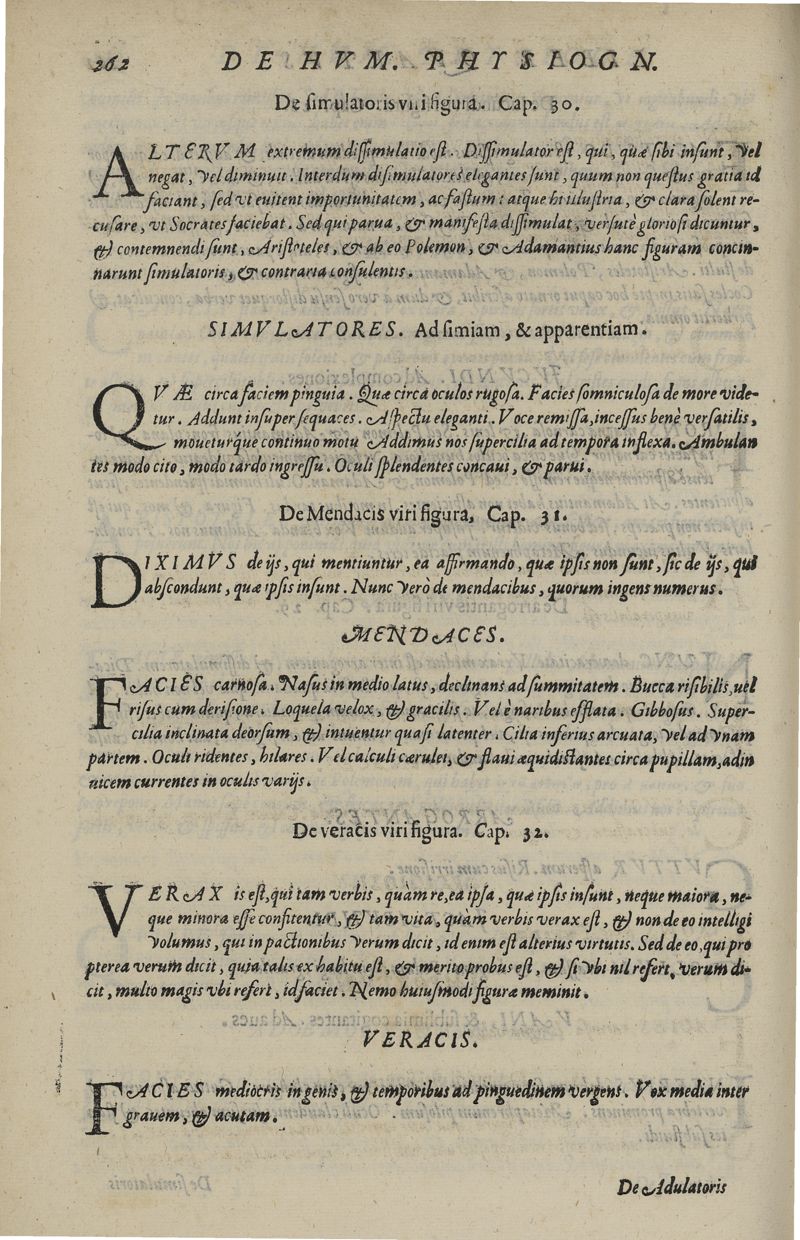 262 DE HVM. PHYSIOGN.
De simulatoris viri figura. Cap. 30.
ALTERVM extremum dissimulatio est. Dissimulator est, qui, quæ sibi insunt, vel
negat, vel diminuit. Interdum disimulatores elegantes sunt, quum non questus gratia id
faciant, sed vt euitent importunitatem, ac fastum: atque hi illustria, & clara solent re-
cusare, vt Socrates faciebat. Sed qui parua, & manifesta dissimulat, versutè gloriosi dicuntur,
& contemnendi sunt, Aristoteles, & ab eo Polemon, & Adamantius hanc figuram concin-
narunt simulatoris, & contraria consulentis.
SIMVLATORES. Ad simiam, & apparentiam.
QVÆ circa faciem pinguia. Quæ circa oculos rugosa. Facies somniculosa de more vide-
tur. Addunt insuper sequaces. Aspectu eleganti. Voce remissa, incessus benè versatilis,
moueturque continuo motu Addimus nos supercilia ad tempora inflexa. Ambulan
tes modo cito, modo tardo ingressu. Oculi splendentes concaui, & parui.
De Mendacis viri figura, Cap. 31.
DIXIMVS de ijs, qui mentiuntur, ea affirmando, quæ ipsis non sunt, sic de ijs, qui
abscondunt, quæ ipsis insunt. Nunc verò de mendacibus, quorum ingens numerus.
MENDACES.
FACIES carnosa. Nasus in medio latus, declinans ad summitatem. Bucca risibilis, uel
risus cum derisione. Loquela velox, & gracilis. Vel è naribus efflata. Gibbosus. Super-
cilia inclinata deorsum, & intuentur quasi latenter. Cilia inferius arcuata, vel ad vnam
partem. Oculi ridentes, hilares. Vel calculi cærulei, & flaui æquidistantes circa pupillam, adin
uicem currentes in oculis varijs.
De veracis viri figura. Cap. 32.
VERAX is est, qui tam verbis, quàm re, ea ipsa, quæ ipsis insunt, neque maiora, ne-
que minora esse confitentur, & tam vita, quàm verbis verax est, & non de eo intelligi
volumus, qui in pactionibus verum dicit, id enim est alterius virtutis. Sed de eo, qui pro
pterea verum dicit, quia talis ex habitu est, & merito probus est, & si vbi nil refert, verum di-
cit, multo magis vbi refert, id faciet. Nemo huiusmodi figuræ meminit.
VERACIS.
FACIES mediocris in genis, & temporibus ad pinguedinem vergent. Vox media inter
grauem, & acutam.
De Adulatoris